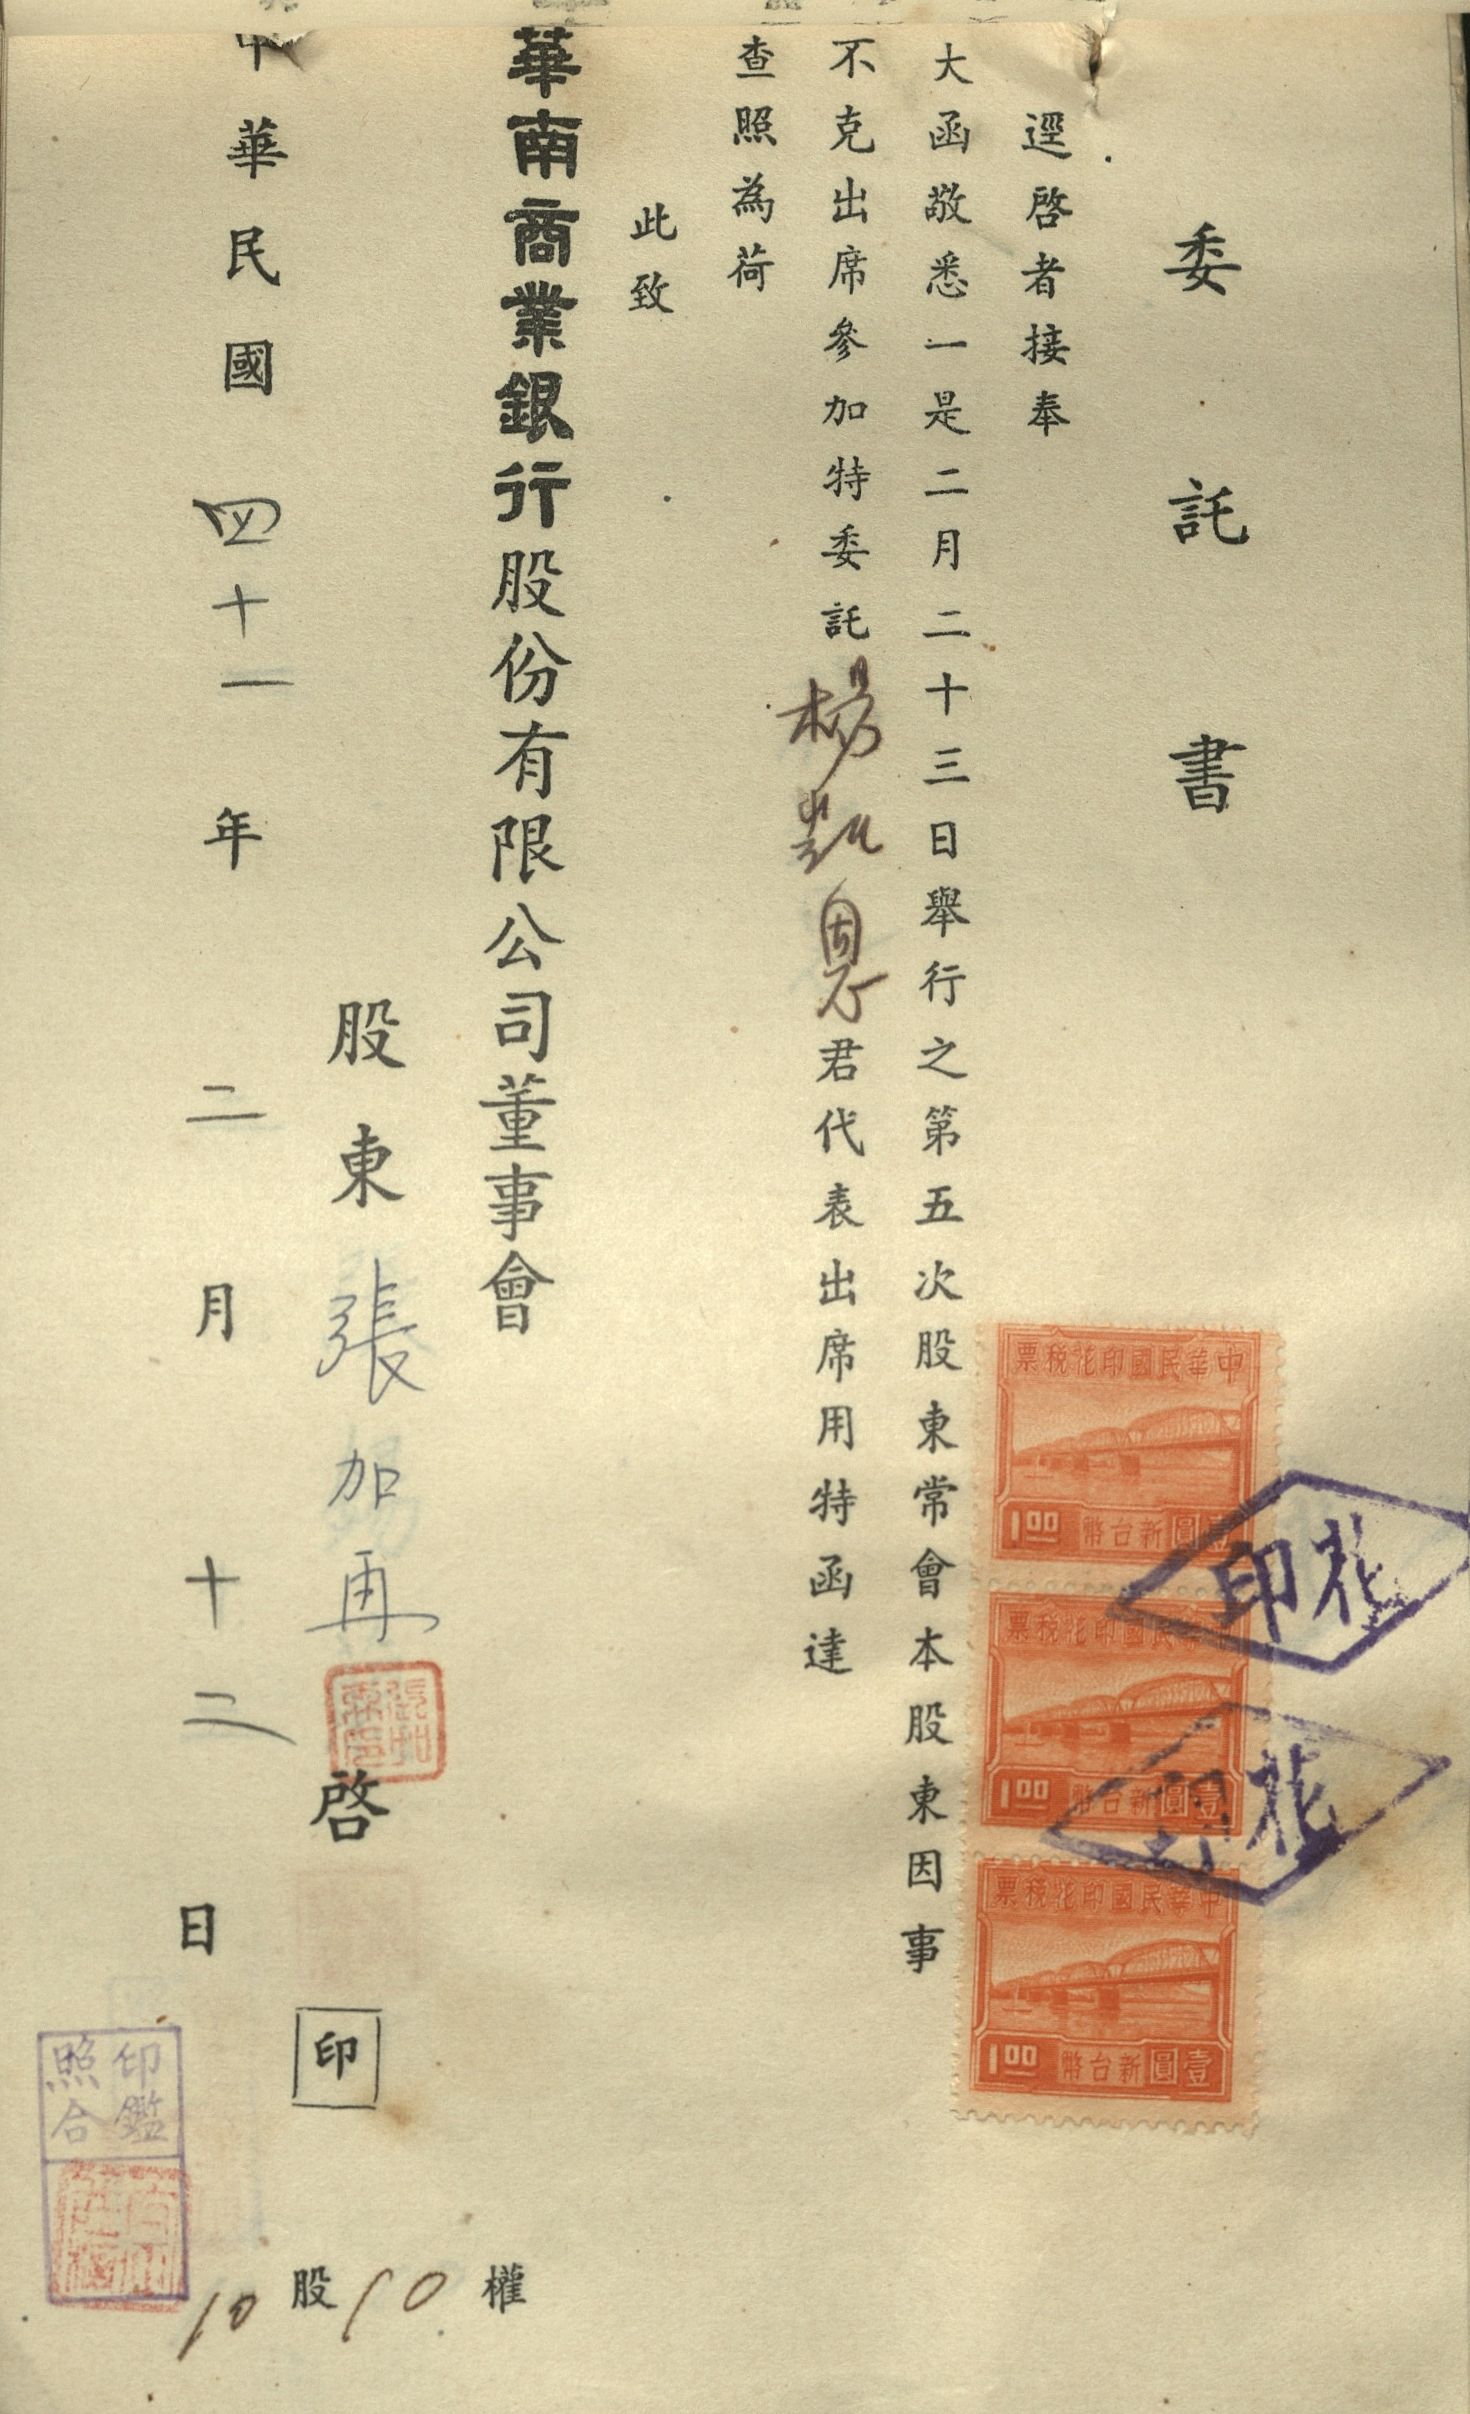 委託書
逕啓者接奉
大函敬悉一是二月二十三日舉行之第五次股東常會本股東因事
不克出席參加特委託楊凱恩君代表出席用特函達
查照為荷
此致
華南商業銀行股份有限公司董事會
股東張加再啓 印
中華民國四十一年二月十二日
10股10權
中華民國印花稅票
1.00 新台幣壹圓
中華民國印花稅票
1.00 新台幣壹圓
中華民國印花稅票
1.00 新台幣壹圓
印花
印花
張加再印
印鑑照合